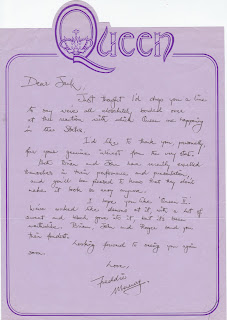 Queen
Dear Jack,
Just thought I'd drop you a line
to say we're all absolutely bowled over
at the reaction with which Queen are
in the States.
I'd like to thank you, personally,
for your genuine interest from the very start.
Both Brian and John have recently excelled
themselves in their performance and presentation,
and you'd be pleased to know that they don't
make it look so easy anymore.
I hope you like 'Queen II'.
We've worked like demons at it, with a lot of
sweat and blood given to it, but its been
worthwhile. Brian, John and Roger send you
their fondest.
Looking forward to seeing you again
soon.
Love,
Freddie
Mercury.